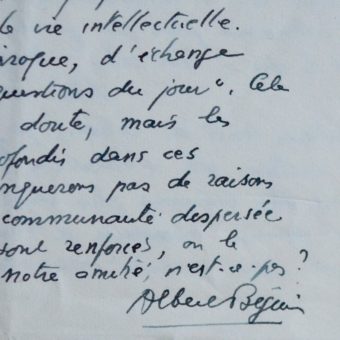 de vie intellectuelle.
d'échange
questions du jour". Cela
doute, mais les
ofondis dans ces
nquerons pas de raisons
communauté dispersée
sont renforcés, ou le
notre amitié, n'est-ce pas?
Albert Béguin